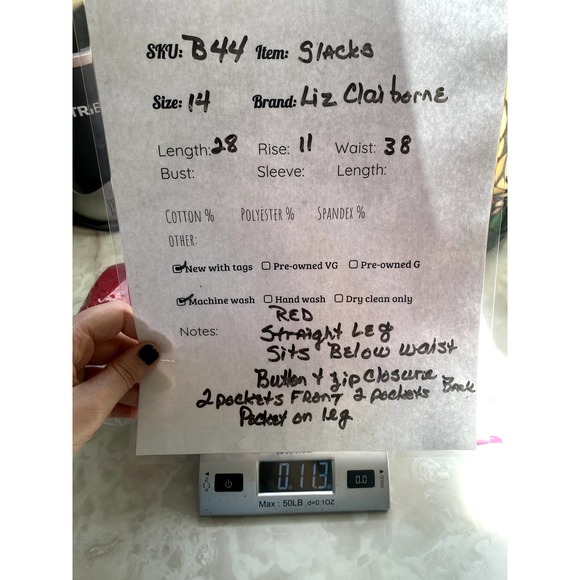 SKU: B44 Item: Slacks
Size: 14 Brand: Liz Claiborne
Length: 28 Rise: 11 Waist: 38
Bust: Sleeve: Length:
COTTON % POLYESTER % SPANDEX %
OTHER:
New with tags Pre-owned VG Pre-owned G
Machine wash Hand wash Dry clean only
RED
Notes: Straight Leg
Sits Below waist
Button + zip Closure
2 pockets FRONT 2 pockets Back
Pocket on leg
0.11.3 0.0
Max : 50LB d=0.1OZ